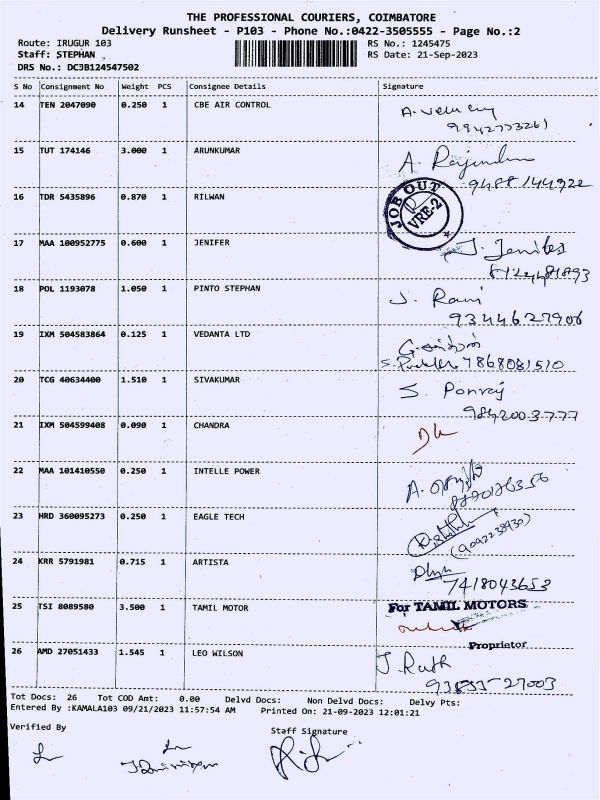 THE PROFESSIONAL COURIERS, COIMBATORE
Delivery Runsheet - P103 - Phone No.:0422-3505555 - Page No.:2
Route: IRUGUR 103 RS No.: 1245475
Staff: STEPHAN RS Date: 21-Sep-2023
DRS No.: DC3B124547502
S No Consignment No Weight PCS Consignee Details Signature
14 TEN 2047090 0.250 1 CBE AIR CONTROL
15 TUT 174146 3.000 1 ARUNKUMAR A. Rajendra
9488144922
16 TDR 5435896 0.870 1 RILWAN JOB OUT VRE-2
17 MAA 100952775 0.600 1 JENIFER
18 POL 1193078 1.050 1 PINTO STEPHAN J. Rani
9344627906
19 IXM 504583864 0.125 1 VEDANTA LTD
7868081510
20 TCG 40634400 1.510 1 SIVAKUMAR S. Ponraj
9842003777
21 IXM 504599408 0.090 1 CHANDRA
22 MAA 101410550 0.250 1 INTELLE POWER
23 HRD 360095273 0.250 1 EAGLE TECH
24 KRR 5791981 0.715 1 ARTISTA
7418043653
25 TSI 8089580 3.500 1 TAMIL MOTOR For TAMIL MOTORS
Proprietor
26 AMD 27051433 1.545 1 LEO WILSON
Tot Docs: 26 Tot COD Amt: 0.00 Delvd Docs: Non Delvd Docs: Delvy Pts:
Entered By :KAMALA103 09/21/2023 11:57:54 AM Printed On: 21-09-2023 12:01:21
Verified By Staff Signature